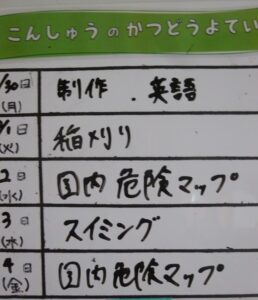 こんしゅうのかつどうよてい
/30日(月) 制作 . 英語
/1日(火) 稲刈り
2日(水) 国内危険マップ
3日(水) スイミング
4日(金) 国内危険マップ